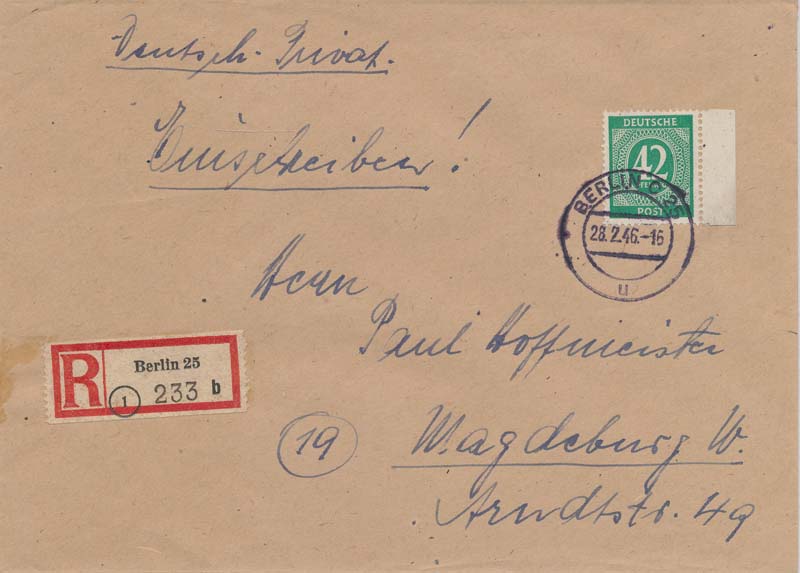 Deutsch-Privat.
Einschreiben!
DEUTSCHE
42
POST
BERLIN C 25
28.2.46.-16
u
Herrn
Paul Hoffmeister
R
Berlin 25
1 233 b
19
Magdeburg W.
Arndtstr. 49